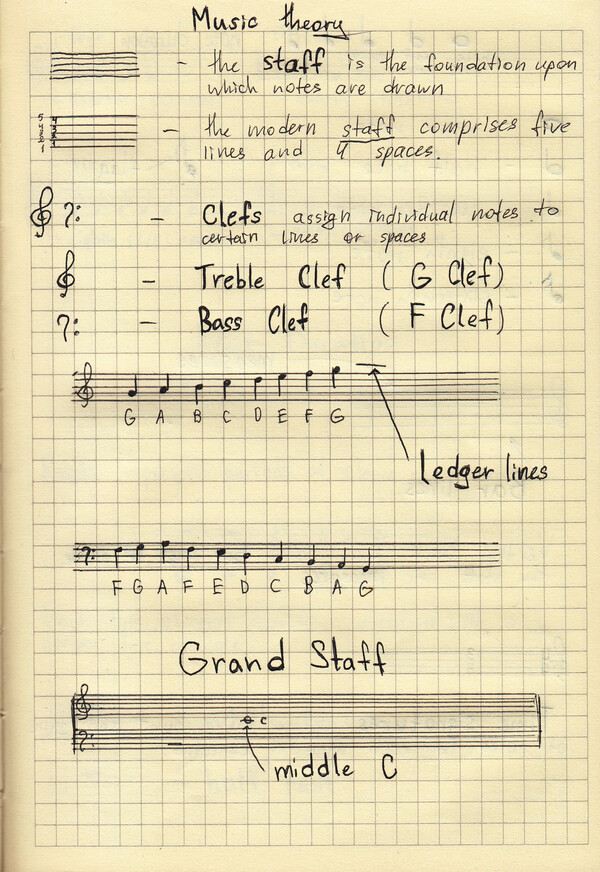 Music theory
- the staff is the foundation upon
which notes are drawn
- the modern staff comprises five
lines and 4 spaces.
- Clefs assign individual notes to
certain lines or spaces
- Treble Clef ( G Clef )
- Bass Clef ( F Clef )
G A B C D E F G
Ledger lines
F G A F E D C B A G
Grand Staff
C
middle C